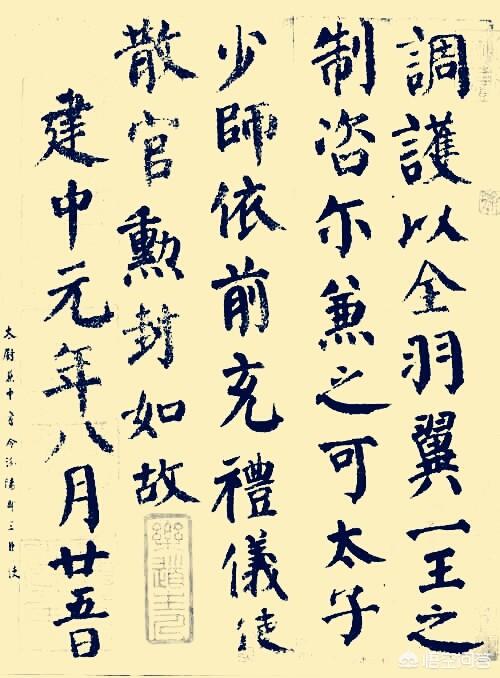 調護以全羽翼一王之
制咨尔兼之可太子
少師依前充禮儀使
散官勳封如故
建中元年八月廿五日
太尉兼中書令汾陽郡王臣使
悟空问答